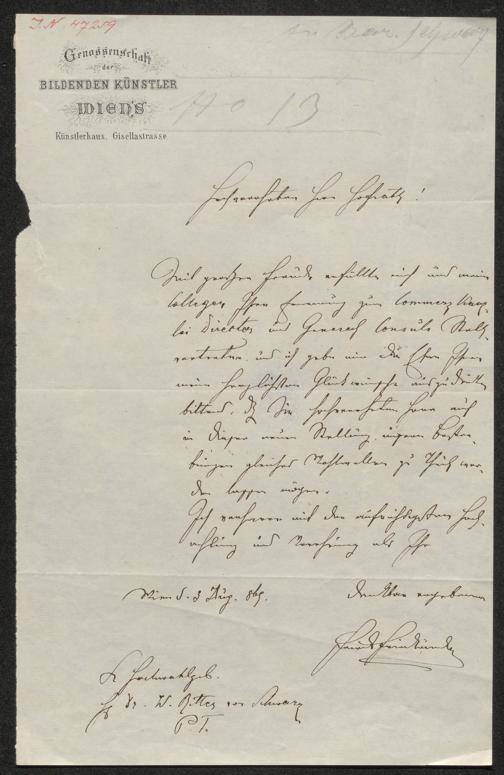 J. N. 47259
Genossenschaft
der
BILDENDEN KÜNSTLER
WIEN'S
Künstlerhaus, Gisellastrasse
A O 13
Hochverehrter Herr Hofrath!
Mit großer Freude erfüllte mich und meine
Collegen Ihre Ernennung zum Commerz Kanz-
lei Director und General Consuls Stell-
vertreter und ich gebe mir die Ehre Ihnen
meine herzlichsten Glückwünsche auszudrücken
bittend, dß Sie hochverehrter Herr auch
in dieser neuen Stellung, unseren Bestre-
bungen gleiches Wohlwollen zu Theil wer-
den lassen mögen.
Ich verharre mit der aufrichtigsten Hoch-
achtung und Verehrung als Ihr
Wien d. 3 Aug. 869.
dankbar ergebener
Sr Hochwohlgeb.
H Dr. W. Ritter von Schwarz
P T.